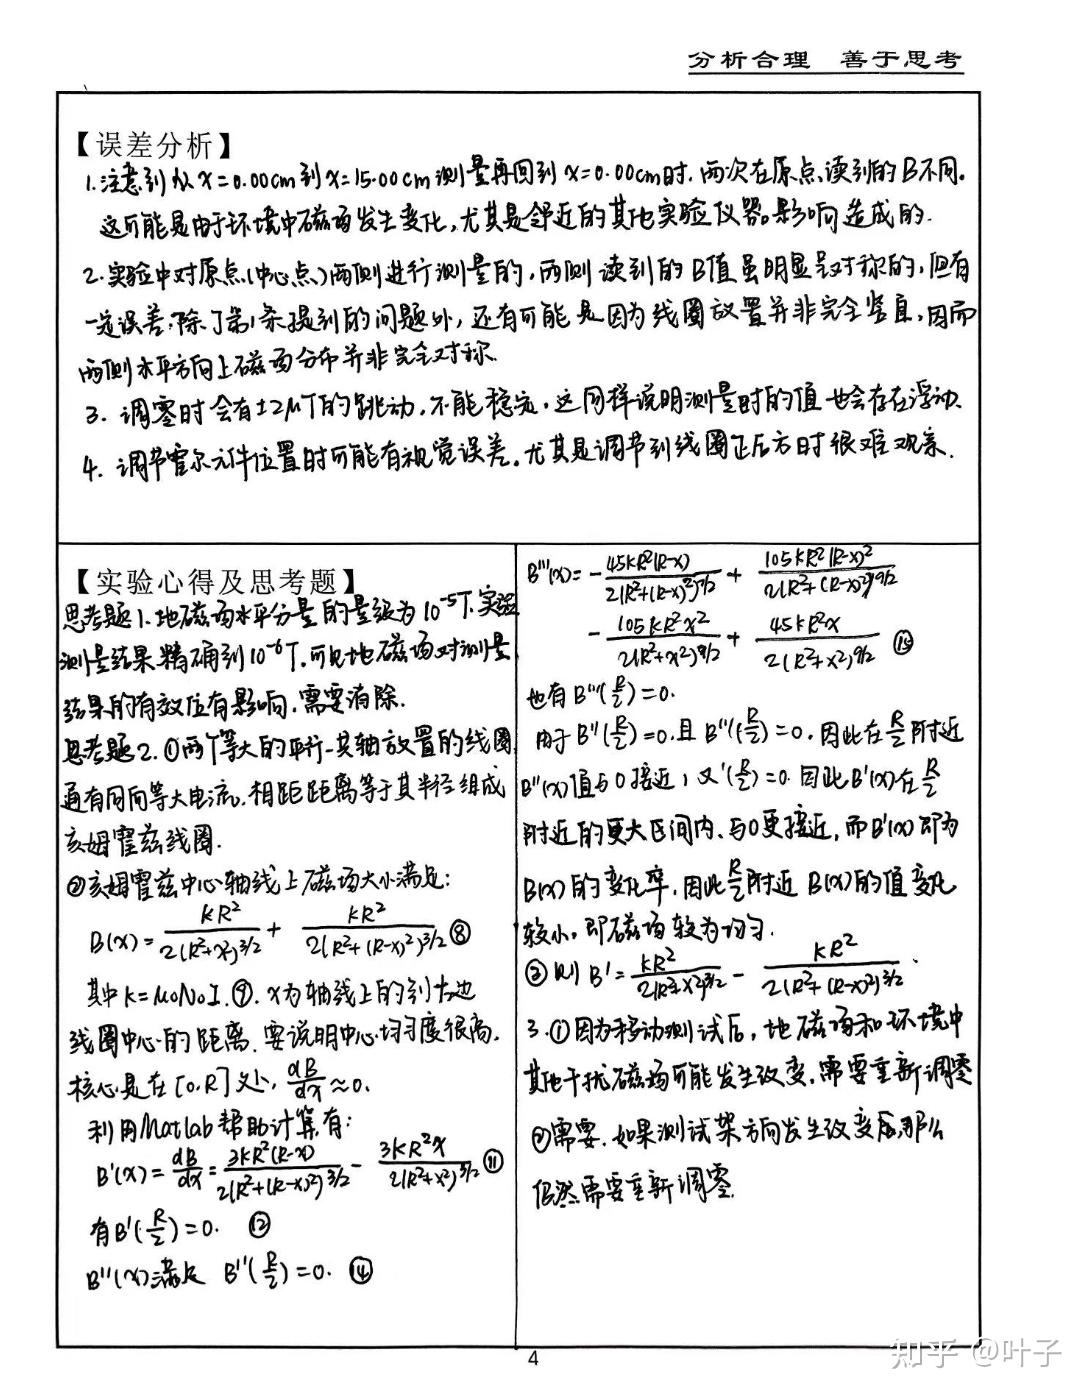 分析合理 善于思考
【误差分析】
1.注意到从x=0.00cm到x=15.00cm测量再回到x=0.00cm时,两次在原点读到的B不同。
这可能是由于环境中磁场发生变化,尤其是邻近的其他实验仪器影响造成的.
2.实验中对原点(中心点)两侧进行测量的,两侧读到的B值虽明显是对称的,但有
一定误差,除了第1条提到的问题外,还有可能是因为线圈放置并非完全竖直,因而
两侧水平方向上磁场分布并非完全对称.
3. 调零时会有±2μT的跳动,不能稳定,这同样说明测量时的值也会存在浮动.
4. 调节霍尔元件位置时可能有视觉误差。尤其是调节到线圈正后方时很难观察.
【实验心得及思考题】
思考题1.地磁场水平分量的量级为10⁻⁵T.实验
测量结果精确到10⁻⁶T,可见地磁场对测量
结果的有效位有影响,需要消除.
思考题2.①两个等大的平行共轴放置的线圈
通有同向等大电流,相距距离等于其半径组成
亥姆霍兹线圈.
②亥姆霍兹中心轴线上磁场大小满足:
B(x)= kR²/2(R²+x²)^3/2 + kR²/2(R²+(R-x)²)^3/2 ⑧
其中k=μ₀N₀I.⑨. x为轴线上的到左边
线圈中心的距离.要说明中心均匀度很高,
核心是在[0,R]处, dB/dx≈0.
利用Matlab帮助计算有:
B'(x)= dB/dx = 3kR²(R-x)/2(R²+(R-x)²)^5/2 - 3kR²x/2(R²+x²)^5/2 ⑪
有B'(R/2)=0. ⑫
B''(x)满足 B''(R/2)=0. ⑭
B'''(x)= - 45kR²(R-x)/2(R²+(R-x)²)^7/2 + 105kR²(R-x)²/2(R²+(R-x)²)^9/2
- 105kR²x²/2(R²+x²)^9/2 + 45kR²x/2(R²+x²)^9/2 ⑮
也有B'''(R/2)=0.
由于B''(R/2)=0,且B'''(R/2)=0,因此在R/2附近
B''(x)值与0接近,又'(R/2)=0.因此B'(x)在R/2
附近的更大区间内,与0更接近,而B'(x)即为
B(x)的变化率,因此R/2附近B(x)的值变化
较小,即磁场较为均匀.
③则B'= kR²/2(R²+x²)^3/2 - kR²/2(R²+(R-x)²)^3/2 .
3.①因为移动测试后,地磁场和环境中
其他干扰磁场可能发生改变,需要重新调零
②需要.如果测试架方向发生改变后,那么
仍然需要重新调零.
4
知乎 @叶子